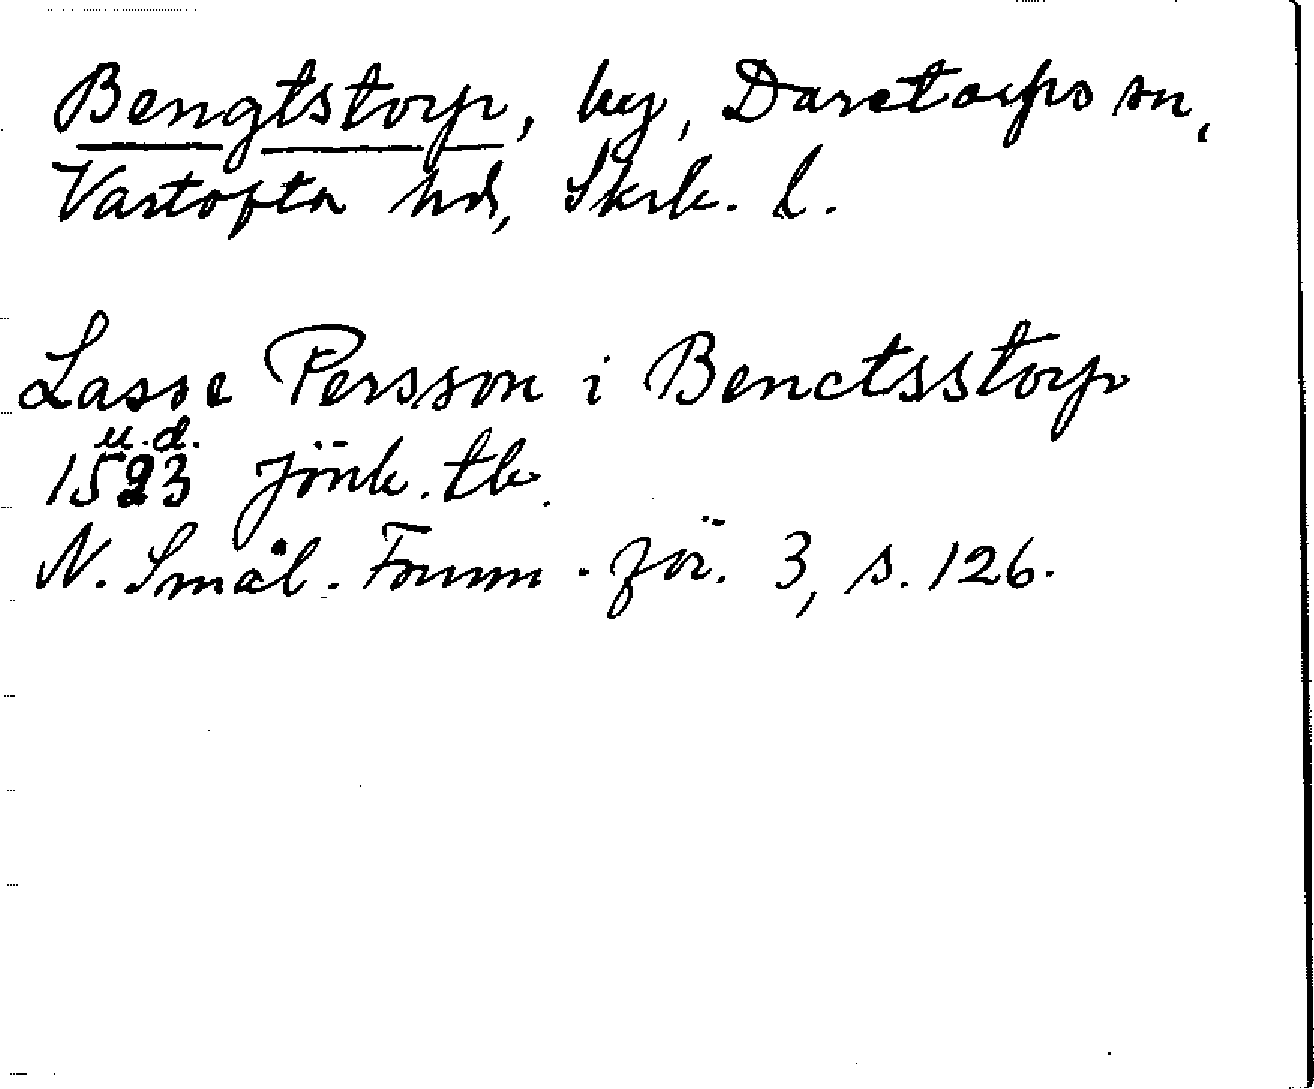 Bengtstorp, by, Daretorps sn,
Vartofta hd, Skrb. l.
Lasse Persson i Benctsstorp
u.d.
1523 Jönk. tb.
N. Smål. Fornm. för. 3, s. 126.